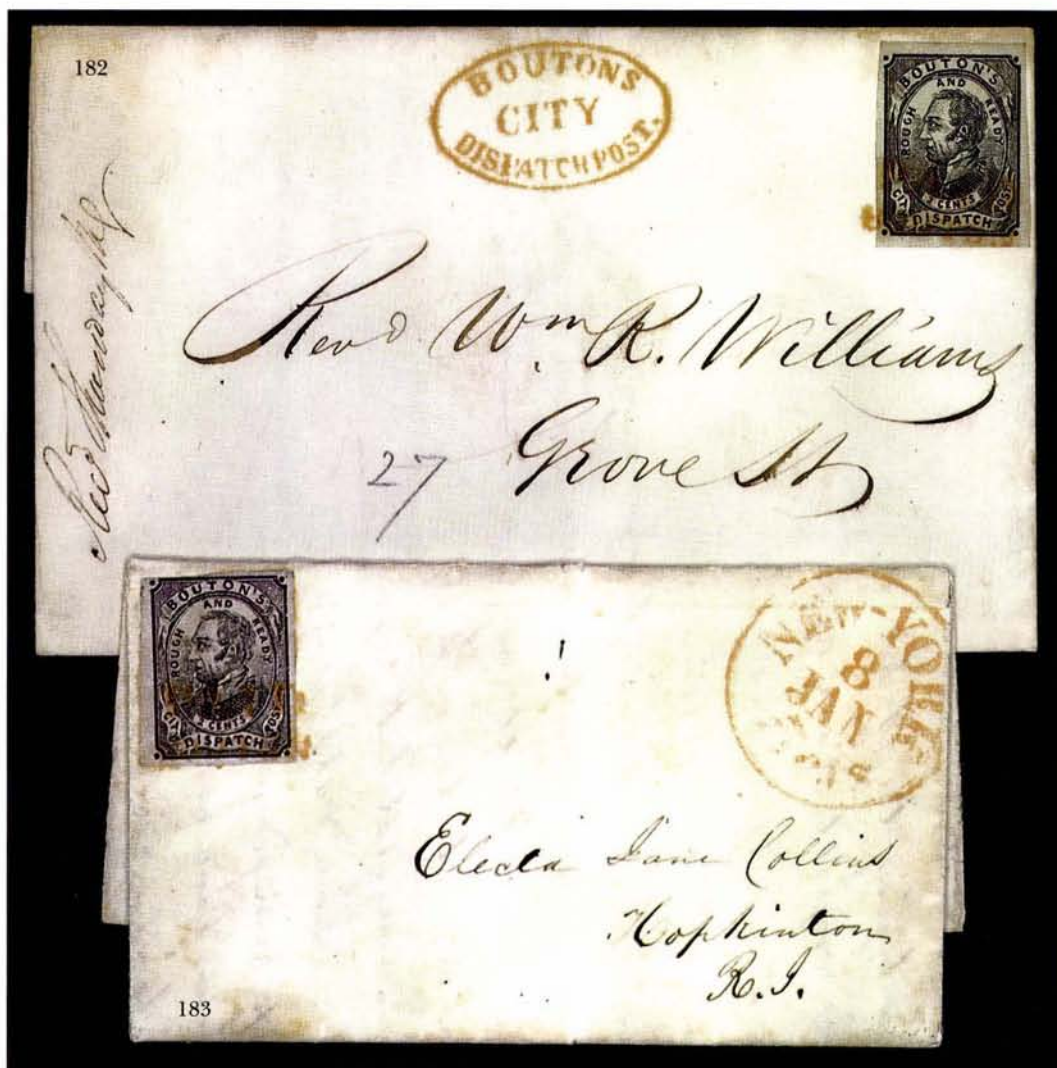 182
BOUTONS
CITY
DISPATCH POST.
BOUTON'S
ROUGH AND READY
2 CENTS
CITY DISPATCH POST
Revd. Wm R. Williams
27 Grove St
BOUTON'S
ROUGH AND READY
2 CENTS
CITY DISPATCH POST
NEW-YORK
8
JAN
Electa Jane Collins
Hopkinton
R.I.
183